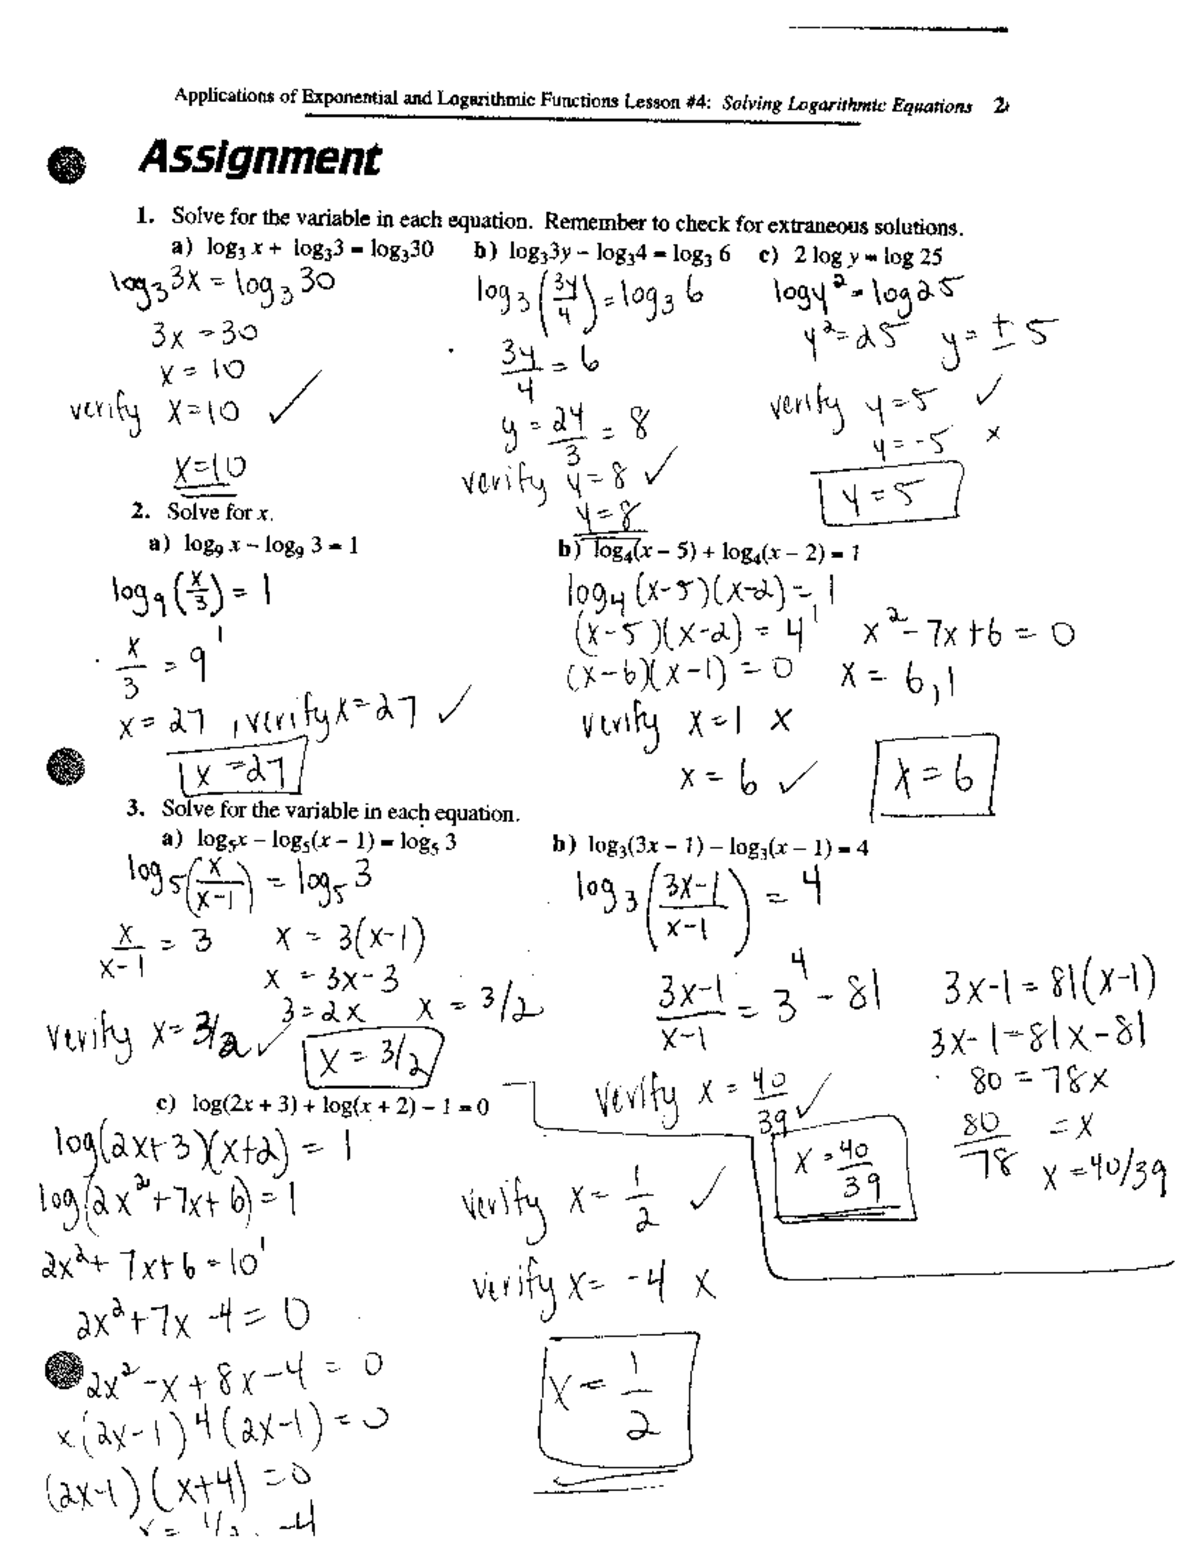 Applications of Exponential and Logarithmic Functions Lesson #4: Solving Logarithmic Equations
Assignment
1. Solve for the variable in each equation. Remember to check for extraneous solutions.
a) log₃ x + log₃3 = log₃30 b) log₃3y – log₃4 = log₃ 6 c) 2 log y = log 25
log₃3x = log₃30
3x = 30
x = 10
verify x=10 ✓
x=10
log₃(3y/4) = log₃6
3y/4 = 6
y = 24/3 = 8
verify y=8 ✓
y=8
logy² = log25
y²=25 y=±5
verify y=5 ✓
y=-5 x
y=5
2. Solve for x.
a) log₉ x – log₉ 3 = 1 b) log₄(x – 5) + log₄(x – 2) = 1
log₉(x/3) = 1
x/3 = 9¹
x = 27, verify x=27 ✓
x=27
log₄(x-5)(x-2) = 1
(x-5)(x-2) = 4¹ x²-7x+6 = 0
(x-6)(x-1) = 0 x = 6,1
verify x=1 x
x = 6 ✓
x=6
3. Solve for the variable in each equation.
a) log₅x – log₅(x – 1) = log₅ 3 b) log₃(3x – 1) – log₃(x – 1) = 4
log₅(x/x-1) = log₅3
x/x-1 = 3 x = 3(x-1)
x = 3x-3
3=2x x = 3/2
verify x=3/2 ✓
x = 3/2
log₃(3x-1/x-1) = 4
3x-1/x-1 = 3⁴ - 81
3x-1 = 81(x-1)
3x-1=81x-81
80 = 78x
80/78 = x
x = 40/39
verify x = 40/39 ✓
x = 40/39
c) log(2x + 3) + log(x + 2) – 1 = 0
log(2x+3)(x+2) = 1
log(2x²+7x+6) = 1
2x²+7x+6 = 10¹
2x²+7x-4 = 0
2x²-x+8x-4 = 0
x(2x-1)4(2x-1) = 0
(2x-1)(x+4) = 0
verify x = 1/2 ✓
verify x = -4 x
x = 1/2